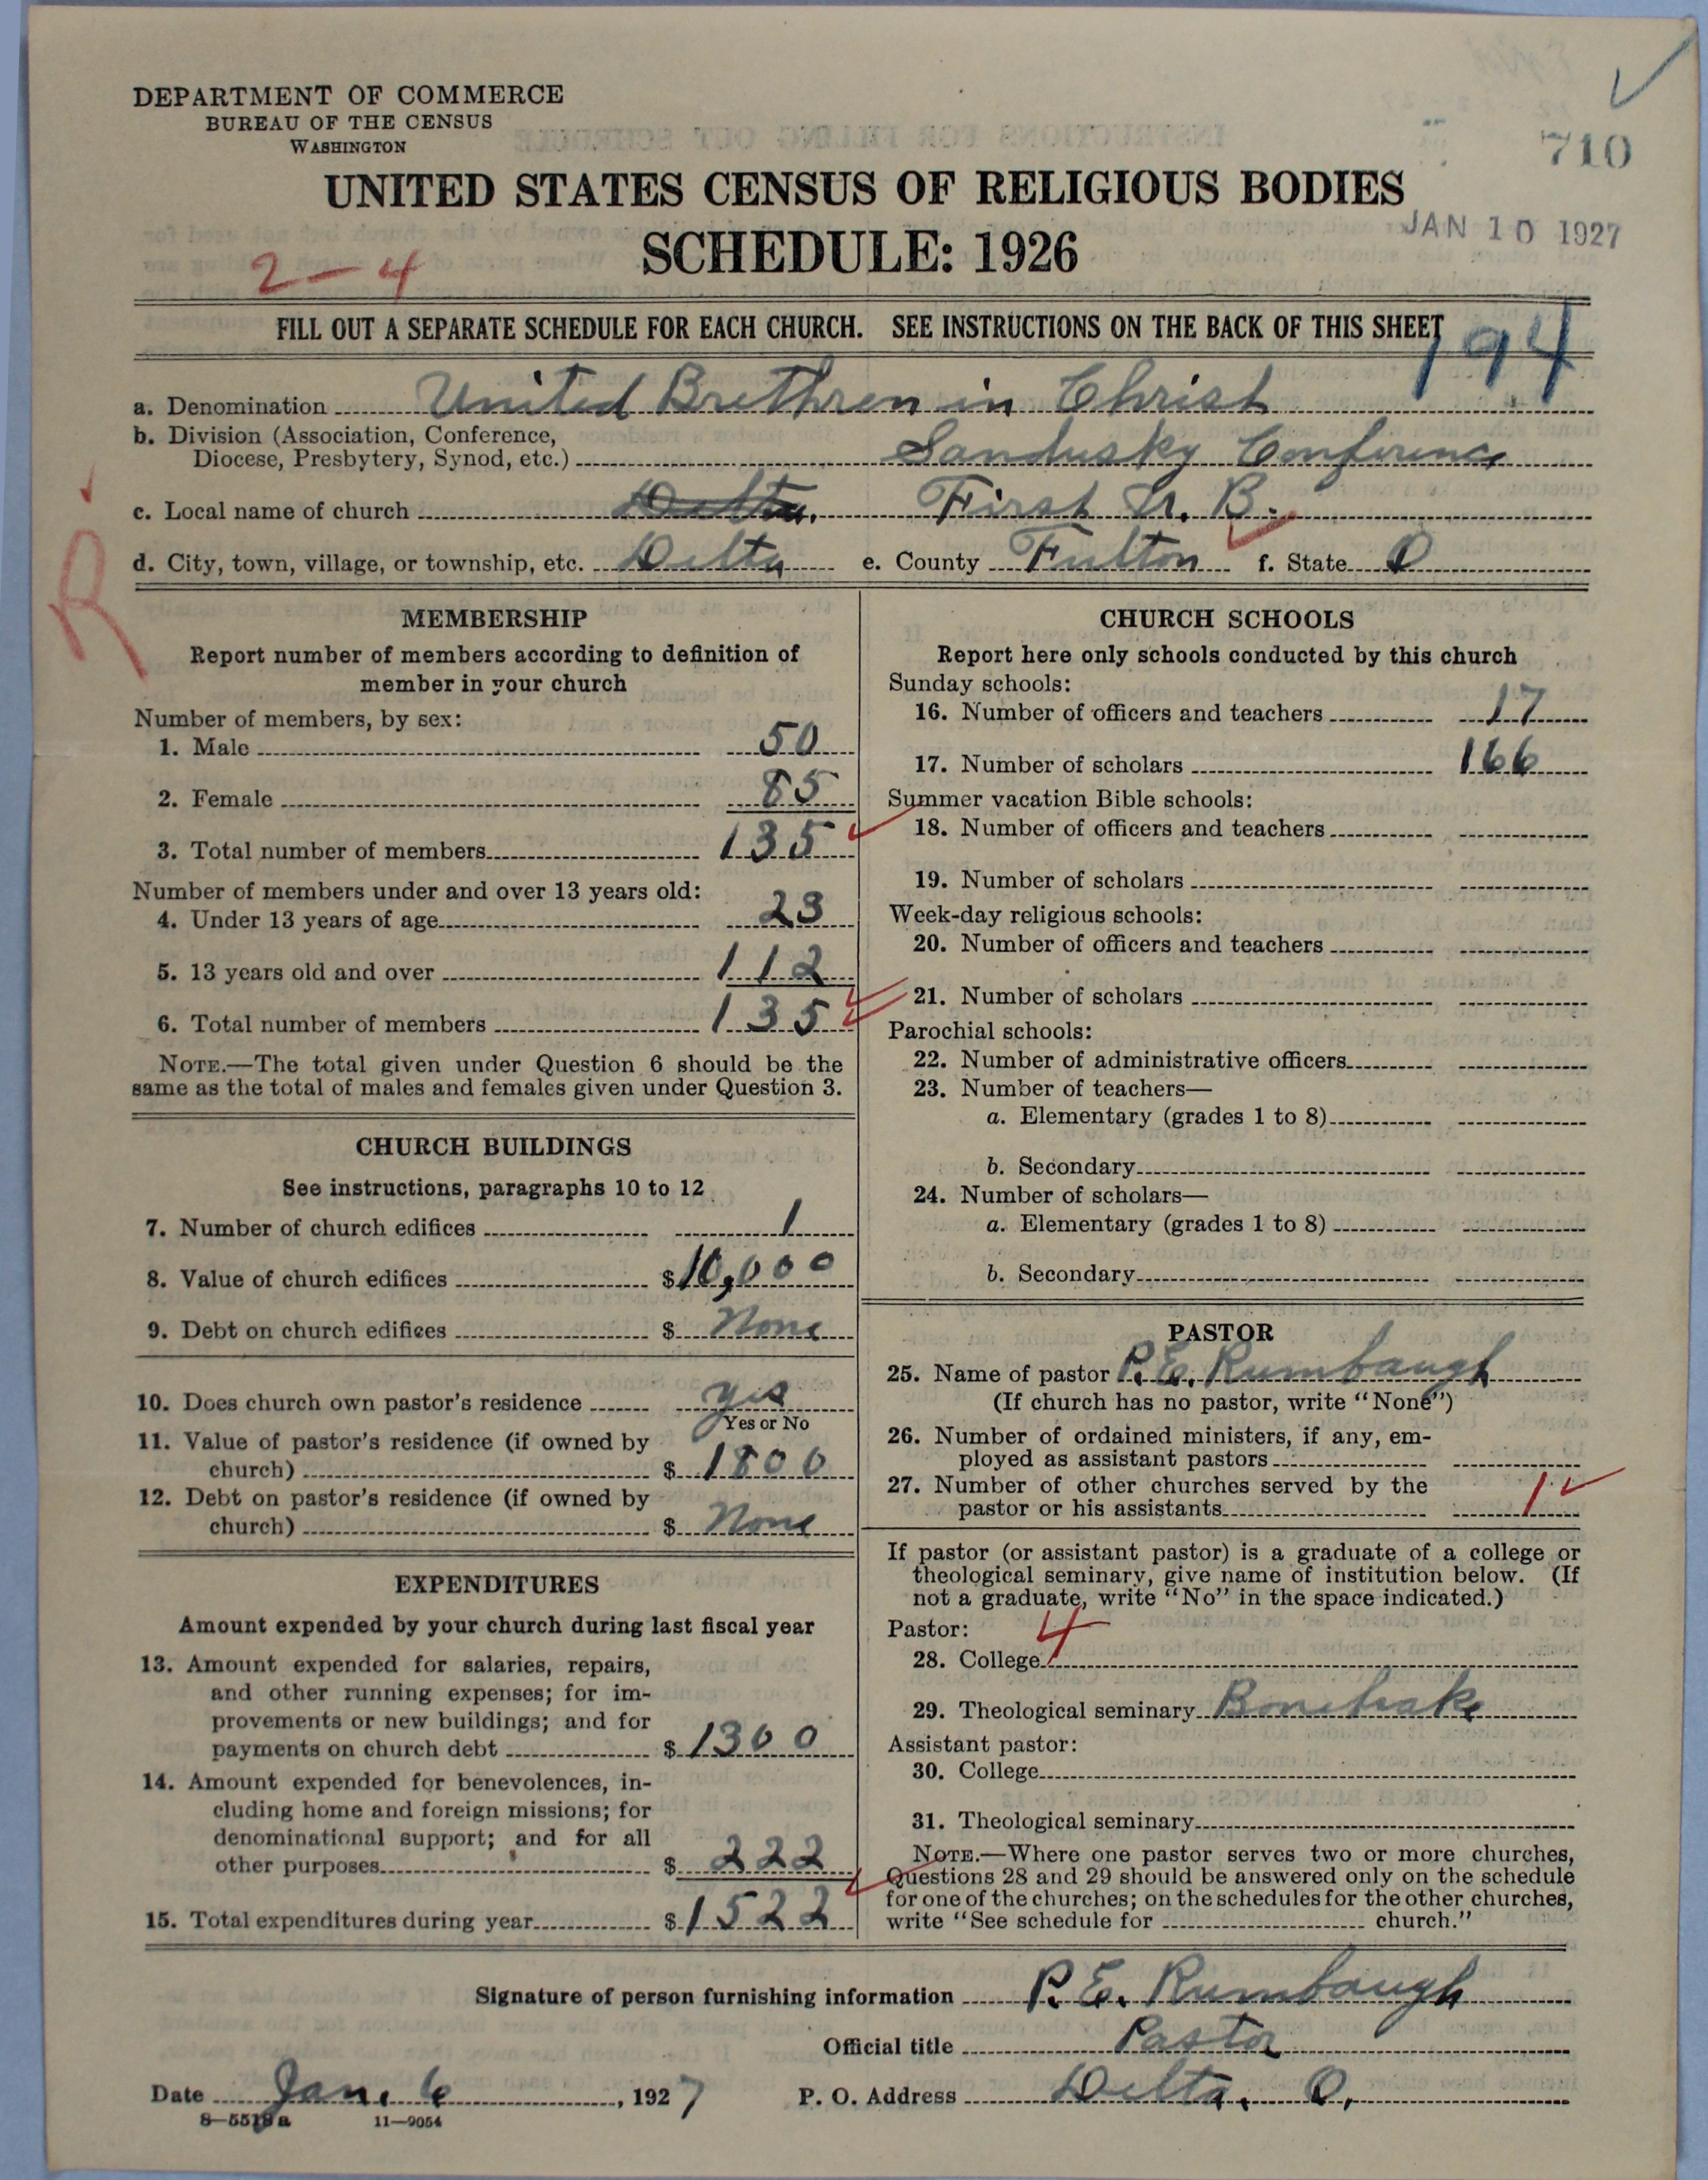 DEPARTMENT OF COMMERCE
BUREAU OF THE CENSUS
WASHINGTON
710
UNITED STATES CENSUS OF RELIGIOUS BODIES
JAN 10 1927
SCHEDULE: 1926
2-4
FILL OUT A SEPARATE SCHEDULE FOR EACH CHURCH. SEE INSTRUCTIONS ON THE BACK OF THIS SHEET
194
a. Denomination United Brethren in Christ
b. Division (Association, Conference,
Diocese, Presbytery, Synod, etc.) Sandusky Conference
c. Local name of church Delta. First U. B.
d. City, town, village, or township, etc. Delta e. County Fulton f. State O
R
MEMBERSHIP
Report number of members according to definition of
member in your church
Number of members, by sex:
1. Male 50
2. Female 85
3. Total number of members 135
Number of members under and over 13 years old:
4. Under 13 years of age 23
5. 13 years old and over 112
6. Total number of members 135
NOTE.—The total given under Question 6 should be the
same as the total of males and females given under Question 3.
CHURCH BUILDINGS
See instructions, paragraphs 10 to 12
7. Number of church edifices 1
8. Value of church edifices $10,000
9. Debt on church edifices $ None
10. Does church own pastor's residence yes
Yes or No
11. Value of pastor's residence (if owned by
church) $ 1800
12. Debt on pastor's residence (if owned by
church) $ None
EXPENDITURES
Amount expended by your church during last fiscal year
13. Amount expended for salaries, repairs,
and other running expenses; for im-
provements or new buildings; and for
payments on church debt $ 1300
14. Amount expended for benevolences, in-
cluding home and foreign missions; for
denominational support; and for all
other purposes $ 222
15. Total expenditures during year $ 1522
CHURCH SCHOOLS
Report here only schools conducted by this church
Sunday schools:
16. Number of officers and teachers 17
17. Number of scholars 166
Summer vacation Bible schools:
18. Number of officers and teachers
19. Number of scholars
Week-day religious schools:
20. Number of officers and teachers
21. Number of scholars
Parochial schools:
22. Number of administrative officers
23. Number of teachers—
a. Elementary (grades 1 to 8)
b. Secondary
24. Number of scholars—
a. Elementary (grades 1 to 8)
b. Secondary
PASTOR
25. Name of pastor P. E. Rumbaugh
(If church has no pastor, write "None")
26. Number of ordained ministers, if any, em-
ployed as assistant pastors
27. Number of other churches served by the
pastor or his assistants 1
If pastor (or assistant pastor) is a graduate of a college or
theological seminary, give name of institution below. (If
not a graduate, write "No" in the space indicated.)
Pastor: 4
28. College
29. Theological seminary Bonebrake
Assistant pastor:
30. College
31. Theological seminary
NOTE.—Where one pastor serves two or more churches,
Questions 28 and 29 should be answered only on the schedule
for one of the churches; on the schedules for the other churches,
write "See schedule for church."
Signature of person furnishing information P. E. Rumbaugh
Official title Pastor
Date Jan. 6, 1927 P. O. Address Delta, O.
8—5518a 11—9054